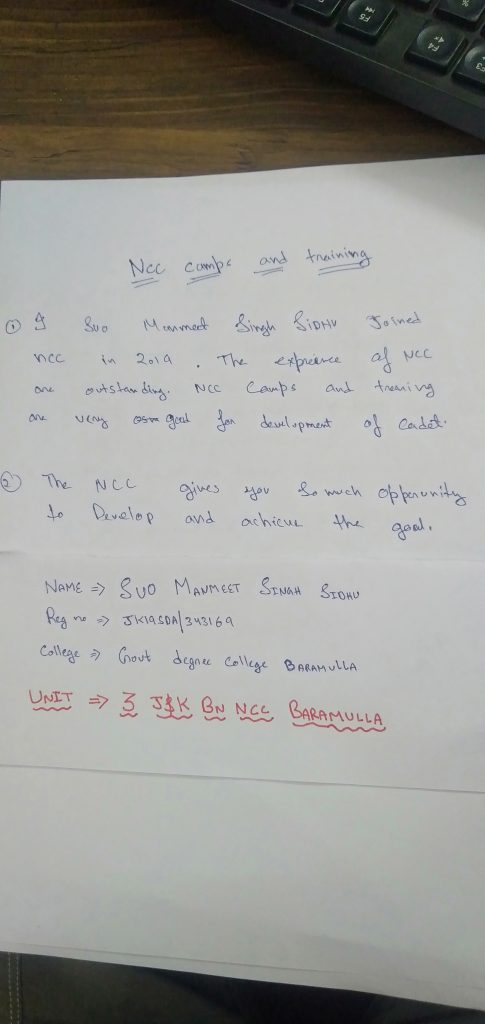 Ncc camps and training
① I SUO Manmeet Singh SIDHU Joined
ncc in 2019 . The expreance of NCC
are outstanding. NCC Camps and traning
are very good for development of Cadet.
② The NCC gives you so much oppernunity
to Develop and achieve the goal.
NAME ⇒ SUO MANMEET SINGH SIDHU
Reg no ⇒ JK19SDA/343169
College ⇒ Govt degree college BARAMULLA
UNIT ⇒ 3 J&K BN NCC BARAMULLA
F5
F4
F3